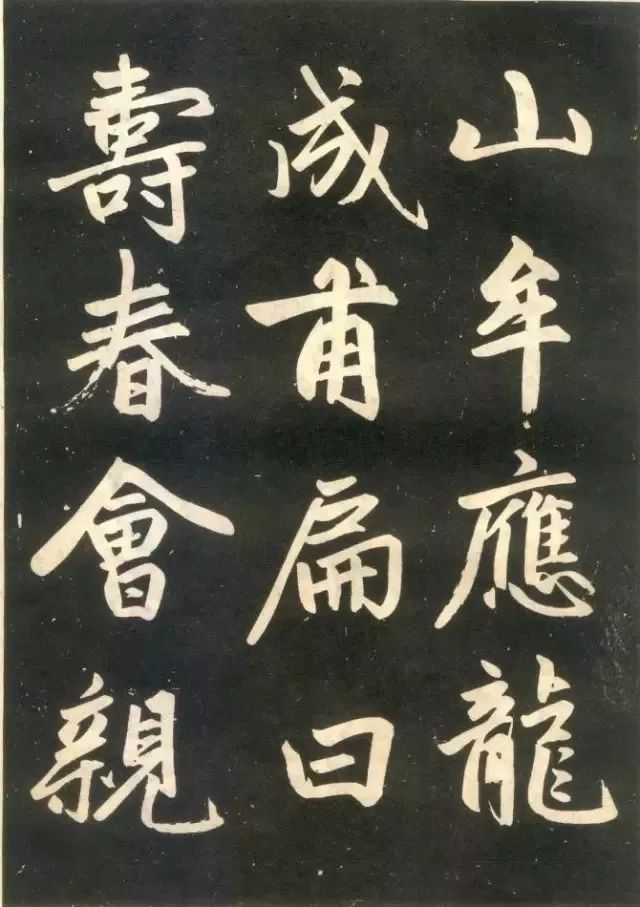 山牟應龍
成甫扁曰
壽春會親